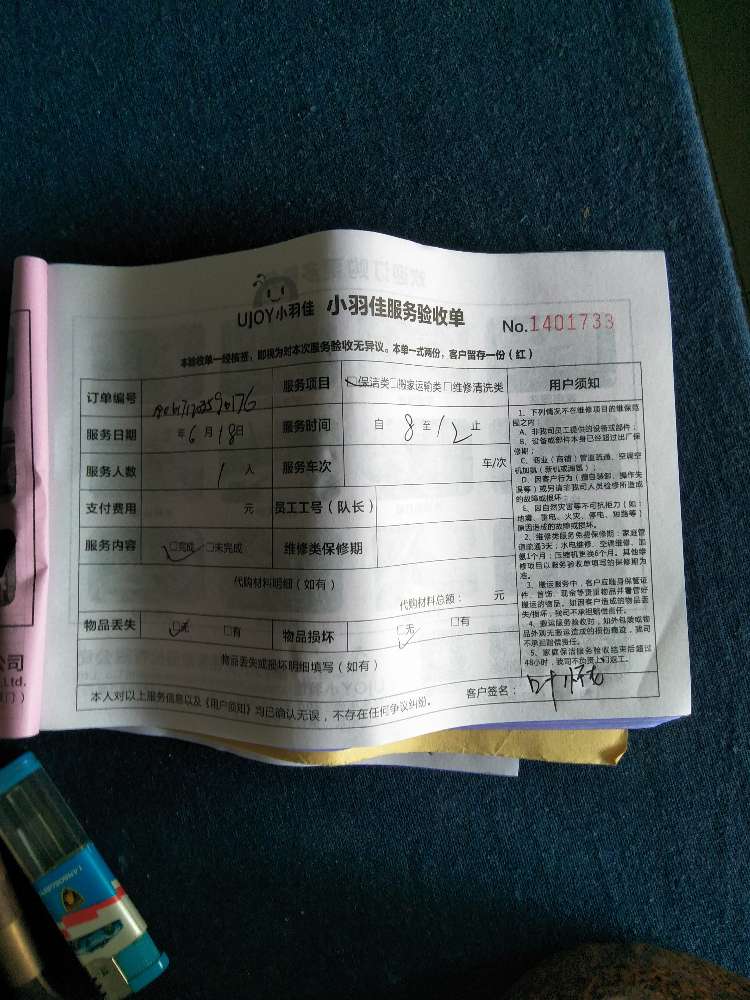 UJOY小羽佳 小羽佳服务验收单 No.1401733
本验收单一经核签，即视为对本次服务验收无异议。本单一式两份，客户留存一份（红）
订单编号 服务项目 □保洁类□搬家运输类□维修清洗类 用户须知
服务日期 年6月18日 服务时间 自8至12止
服务人数 1人 服务车次 年/次
支付费用 元 员工工号（队长）
服务内容 □完成 □未完成 维修类保修期
代购材料明细（如有）
代购材料总额： 元
物品丢失 □无 □有 物品损坏 □无 □有
物品丢失或损坏明细填写（如有）
本人对以上服务信息以及《用户须知》均已确认无误，不存在任何争议纠纷。 客户签名：叶
1、下列情况不在维修项目的维保范
围之内：
A、非我司员工提供的设备或部件；
B、设备或部件本身已经超过出厂保
修期；
C、商业（商铺）管道疏通、空调空
机加氨（新机或漏氨）；
D、因客户行为（擅自装卸、操作失
误等）或另请非我司人员检修所造成
的故障或损坏；
E、因自然灾害等不可抗拒力（如：
地震、雷电、火灾、停电、短路等）
原因造成的故障或损坏。
2、维修类服务免费保修期：家庭管
道疏通3天；水电维修、空调维修、加
氨1个月；压缩机更换6个月。其他维
修项目以服务验收单填写的保修期为
准。
3、搬运服务中，客户应随身保管证
件、首饰、现金等贵重物品并看管好
搬运的物品，如因客户造成的物品丢
失/损坏，我司不承担赔偿责任。
4、搬运服务验收时，如外包装或物
品外观无搬运造成的损伤痕迹，我司
不承担赔偿责任。
5、家庭保洁服务验收结束后超过
48小时，我司不负责上门返工。
公司
Ltd.
门）